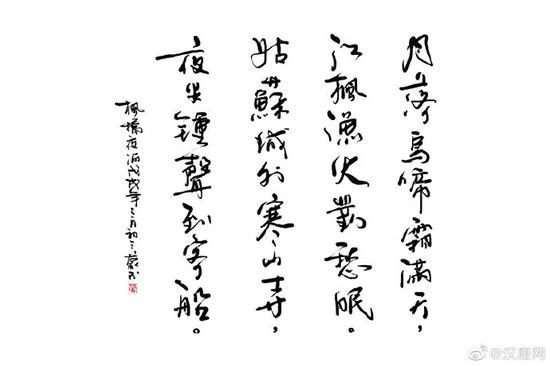 月落烏啼霜滿天，
江楓漁火對愁眠。
姑蘇城外寒山寺，
夜半鍾聲到客船。
楓橋夜泊戊戌年三月初三
@汉唐网